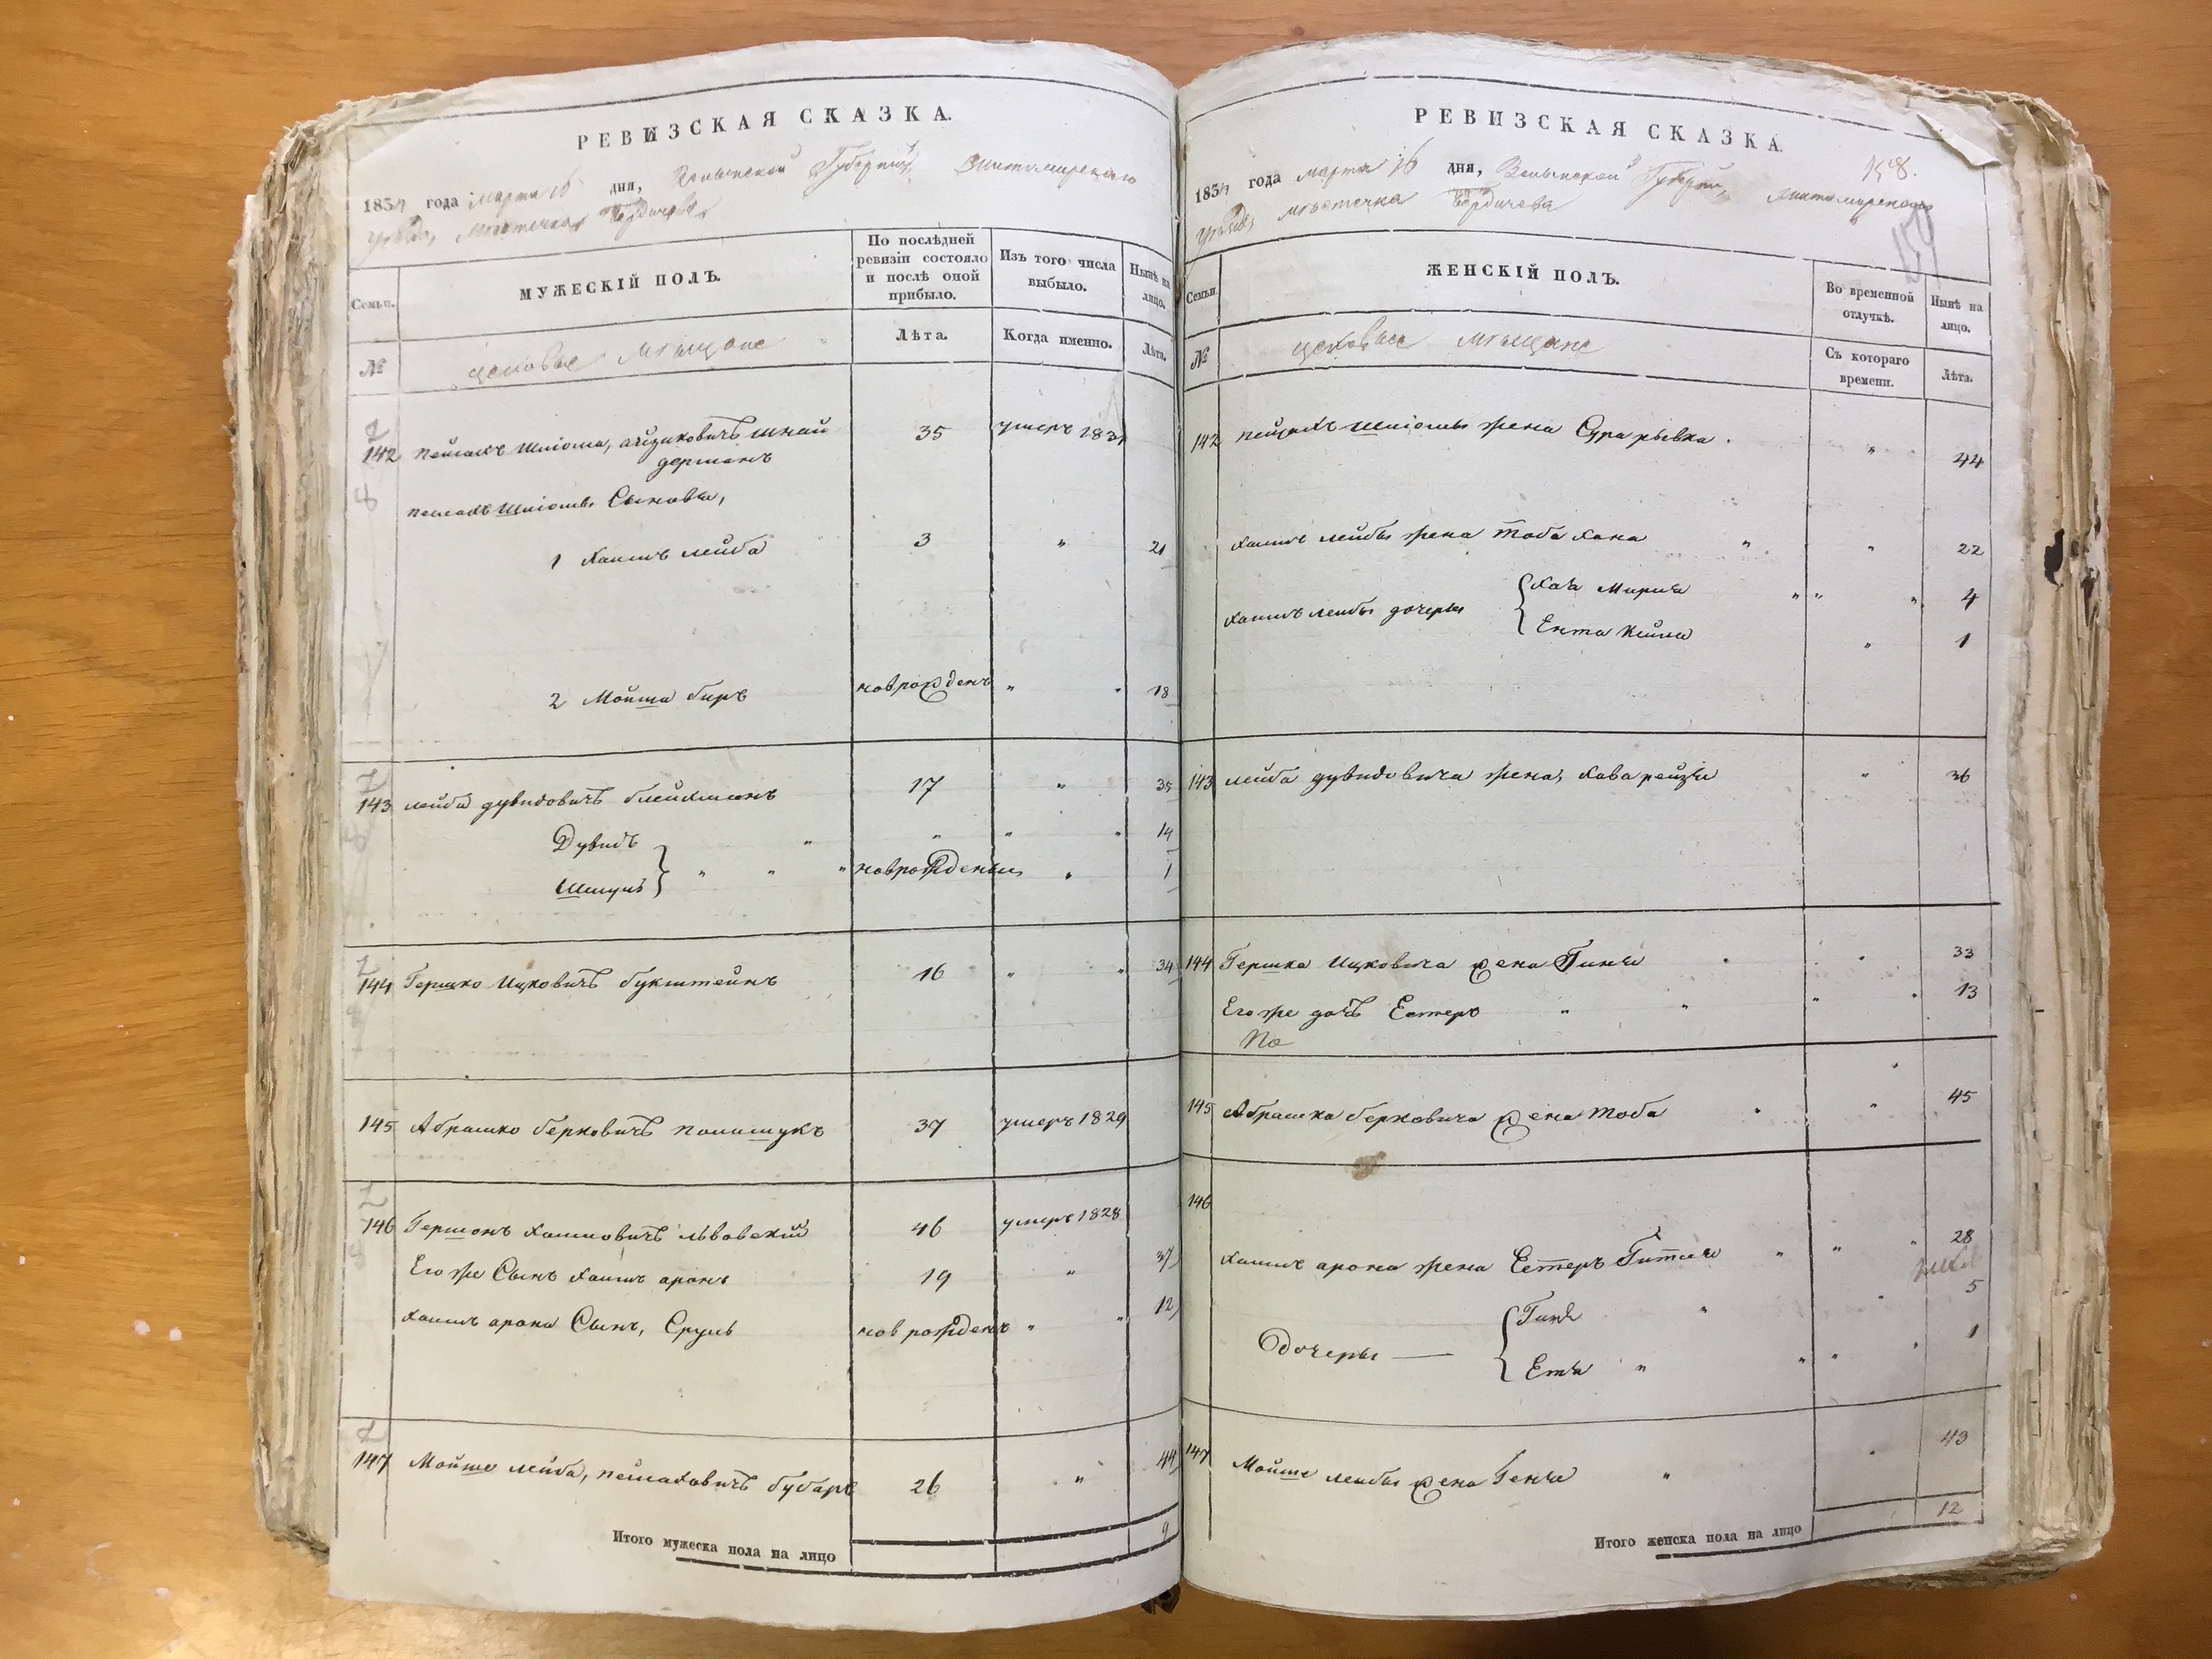 РЕВИЗСКАЯ СКАЗКА.
1834 года Марта 16 дня, Волынской Губерніи, Житомирскаго
Уѣзда, Мѣстечка Бердичева
Семьи.
МУЖЕСКІЙ ПОЛЪ.
По послѣдней ревизіи состояло и послѣ оной прибыло.
Изъ того числа выбыло.
Нынѣ на лицо.
№
цеховые мѣщане
Лѣта.
Когда именно.
Лѣта.
142 Пейсахъ Шліома, айзиковичъ шнай 35 умеръ 1831
дерманъ
пейсахъ Шліомы Сыновья,
1 Хаимъ лейба 3 " 21
2 Мойша биръ новрожденъ " " 18
143 лейба дувидовичъ блейхманъ 17 " 35
Дувидъ " " " " 14
Шмуль } " " " новрожденны " 1
144 Гершко Ицковичъ букштейнъ 16 " " 34
145 Абрашко берковичъ полишукъ 37 умеръ 1829
146 Гершонъ хаимовичъ львовскій 46 умеръ 1828
Его же Сынъ хаимъ аронъ 19 " 37
хаимъ арона Сынъ, Сруль новрожденъ " " 12
147 Мойше лейба, пейсаховичъ бубаръ 26 " 44
Итого мужеска пола на лицо 9
РЕВИЗСКАЯ СКАЗКА.
158.
1834 года марта 16 дня, Волынской Губерніи, Житомирскаго
Уѣзда, мѣстечка Бердичева
Семьи.
ЖЕНСКІЙ ПОЛЪ.
Во временной отлучкѣ.
Нынѣ на лицо.
№
цеховые мѣщане
Съ котораго времени.
Лѣта.
142 пейсахъ Шліомы жена Сура рывка . " 44
хаимъ лейбы жена тоба хана " " 22
хаимъ лейбы дочеры { хая Мирия " " " 4
Ента " 1
143 лейба дувидовича жена, хава рейзя " 36
144 Гершка Ицковича жена Гиня " " 33
Его же дочь Естеръ " " " " 13
No
145 Абрашка берковича жена Тоба " " 45
146
хаимъ арона жена Естеръ Гитля " " " 28
дочеры — { Гиня " " 5
Етя " " " " 1
147 Мойше лейбы жена Генче " " 43
Итого женска пола на лицо 12